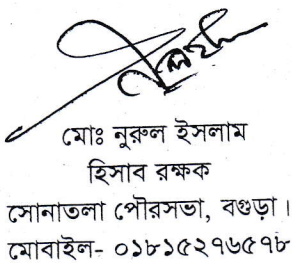 মোঃ নুরুল ইসলাম
হিসাব রক্ষক
সোনাতলা পৌরসভা, বগুড়া।
মোবাইল- ০১৮১৫২৭৬৫৭৮